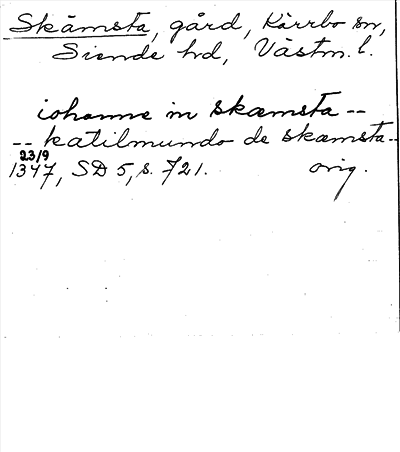 Skämsta, gård, Kärrbo sn,
Siende hd, Västm. l.
iohanne in skæmsta --
-- katilmundo de skæmsta --
23/9
1347, SD 5, s. 721. orig.